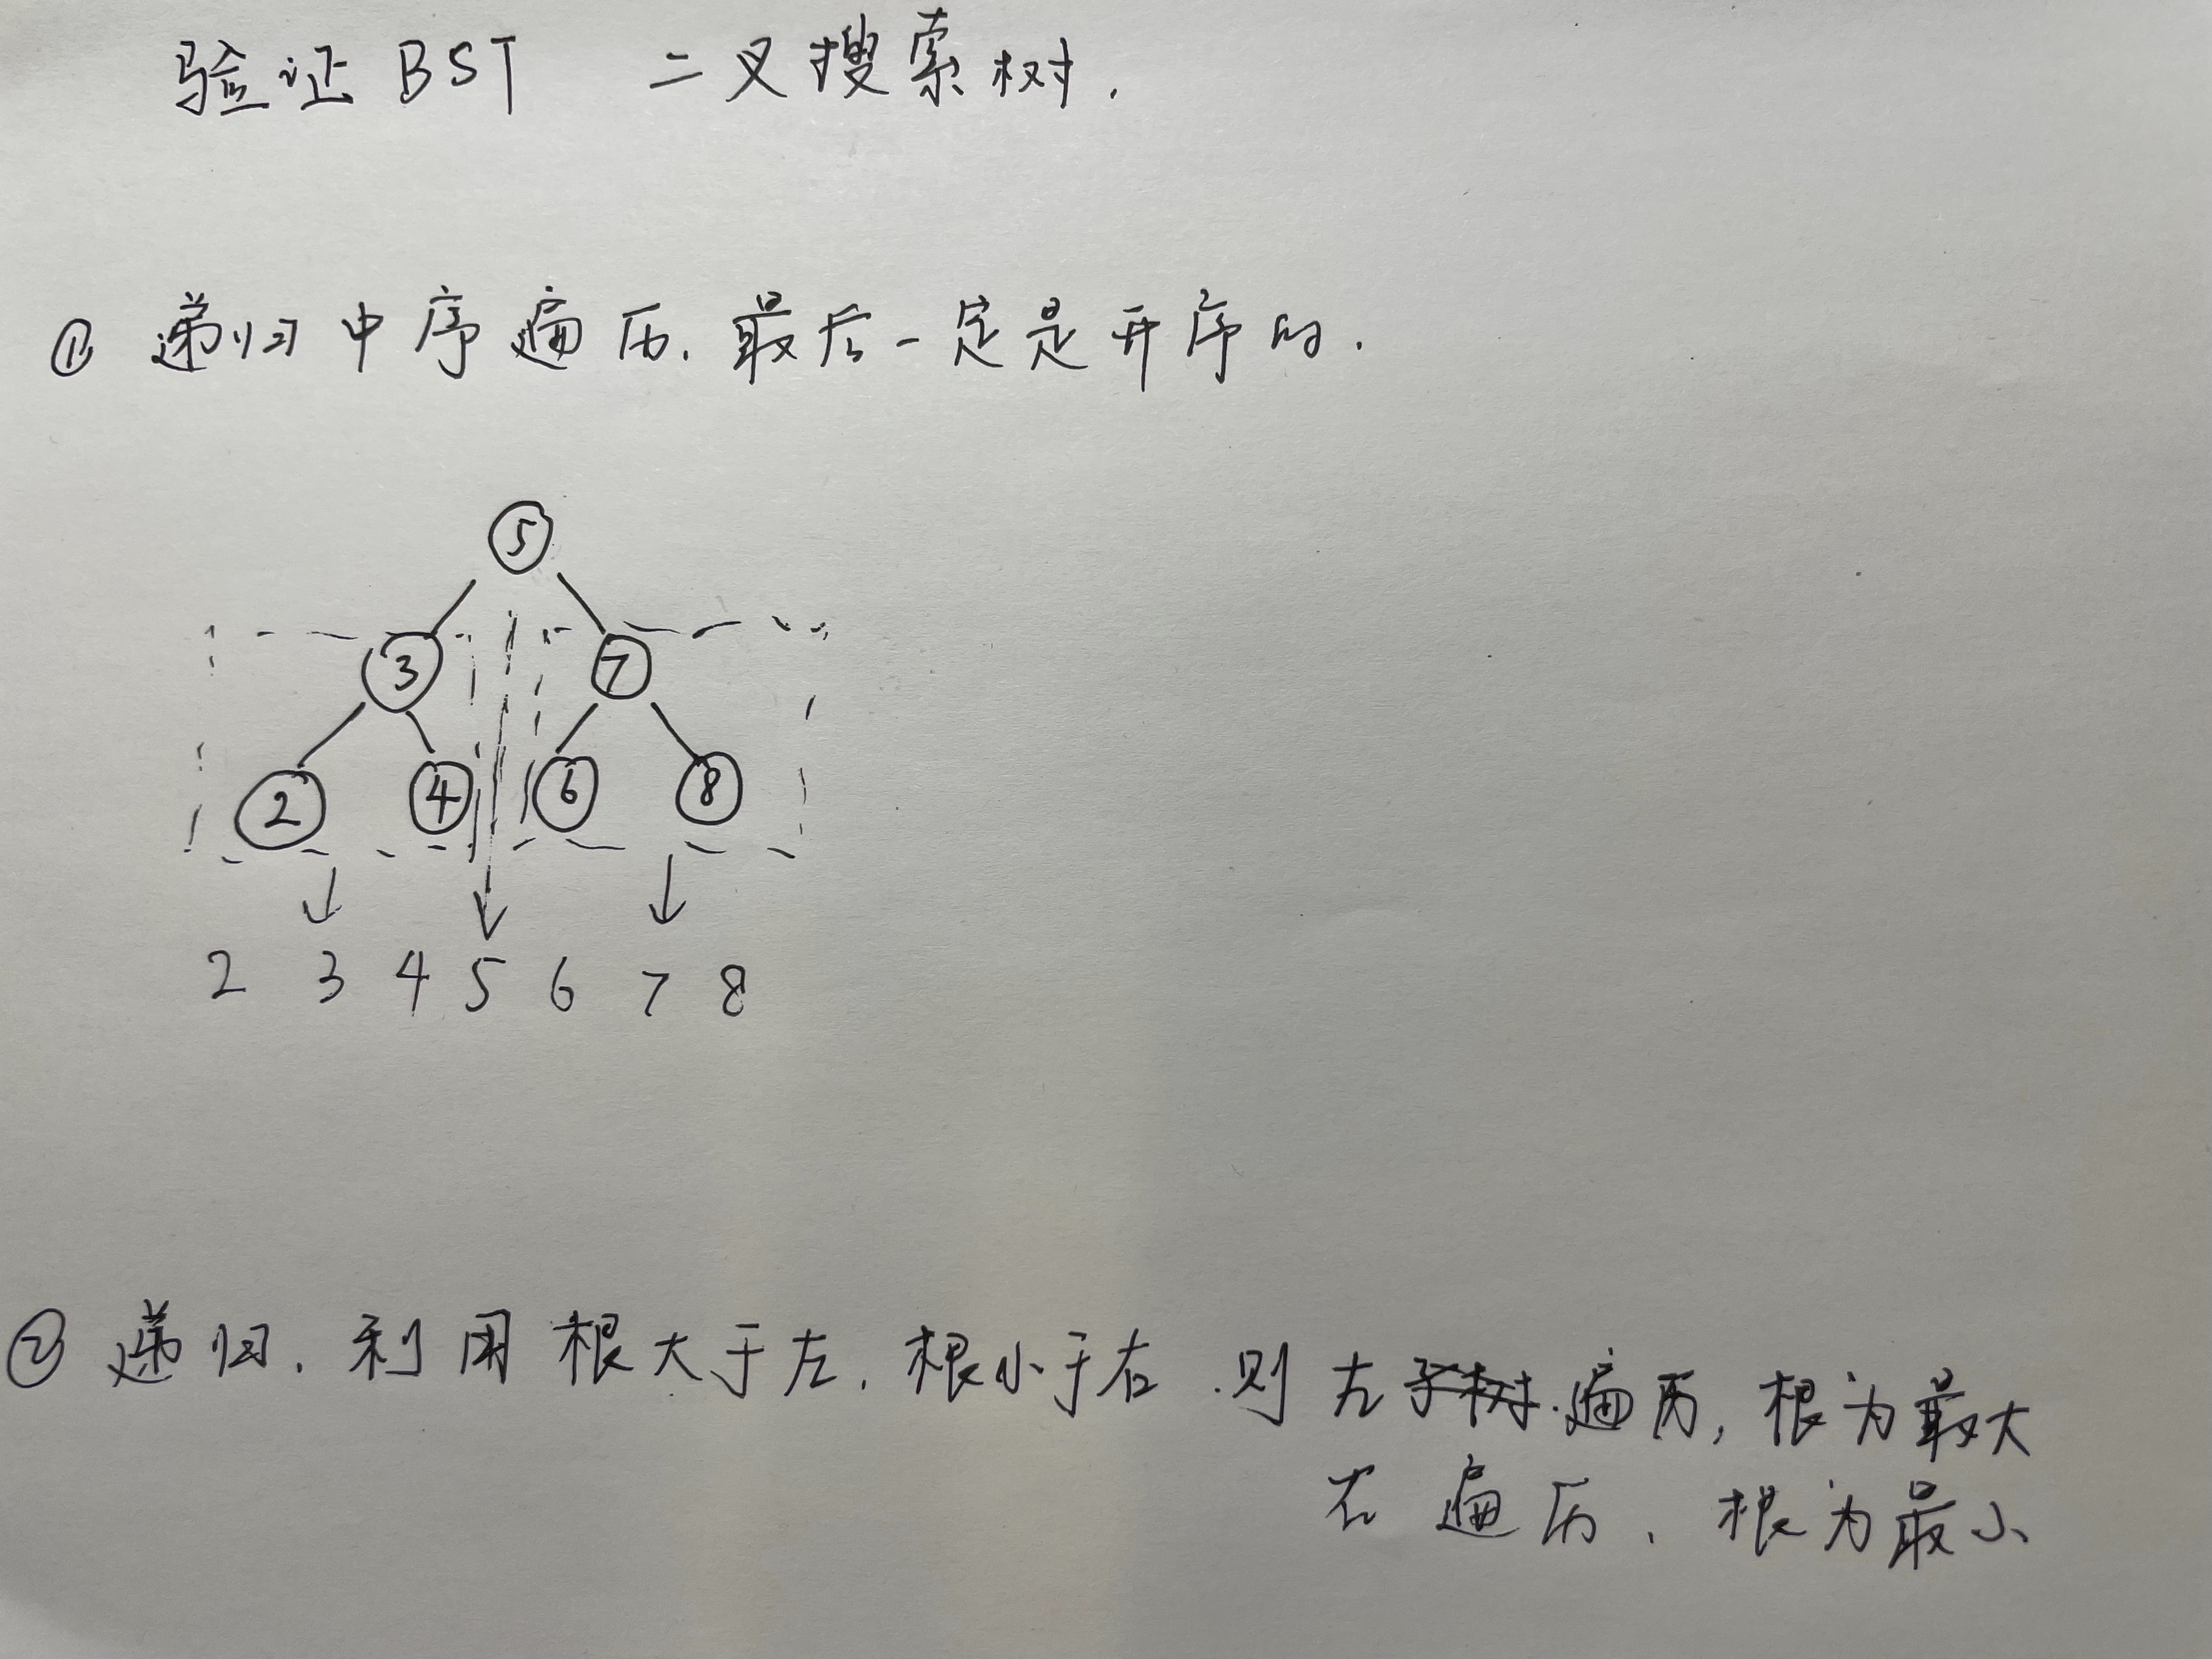 验证BST 二叉搜索树.
① 递归中序遍历.最后一定是升序的.
5
3 7
2 4 6 8
2 3 4 5 6 7 8
② 递归.利用根大于左.根小于右.则左遍历,根为最大
右遍历.根为最小